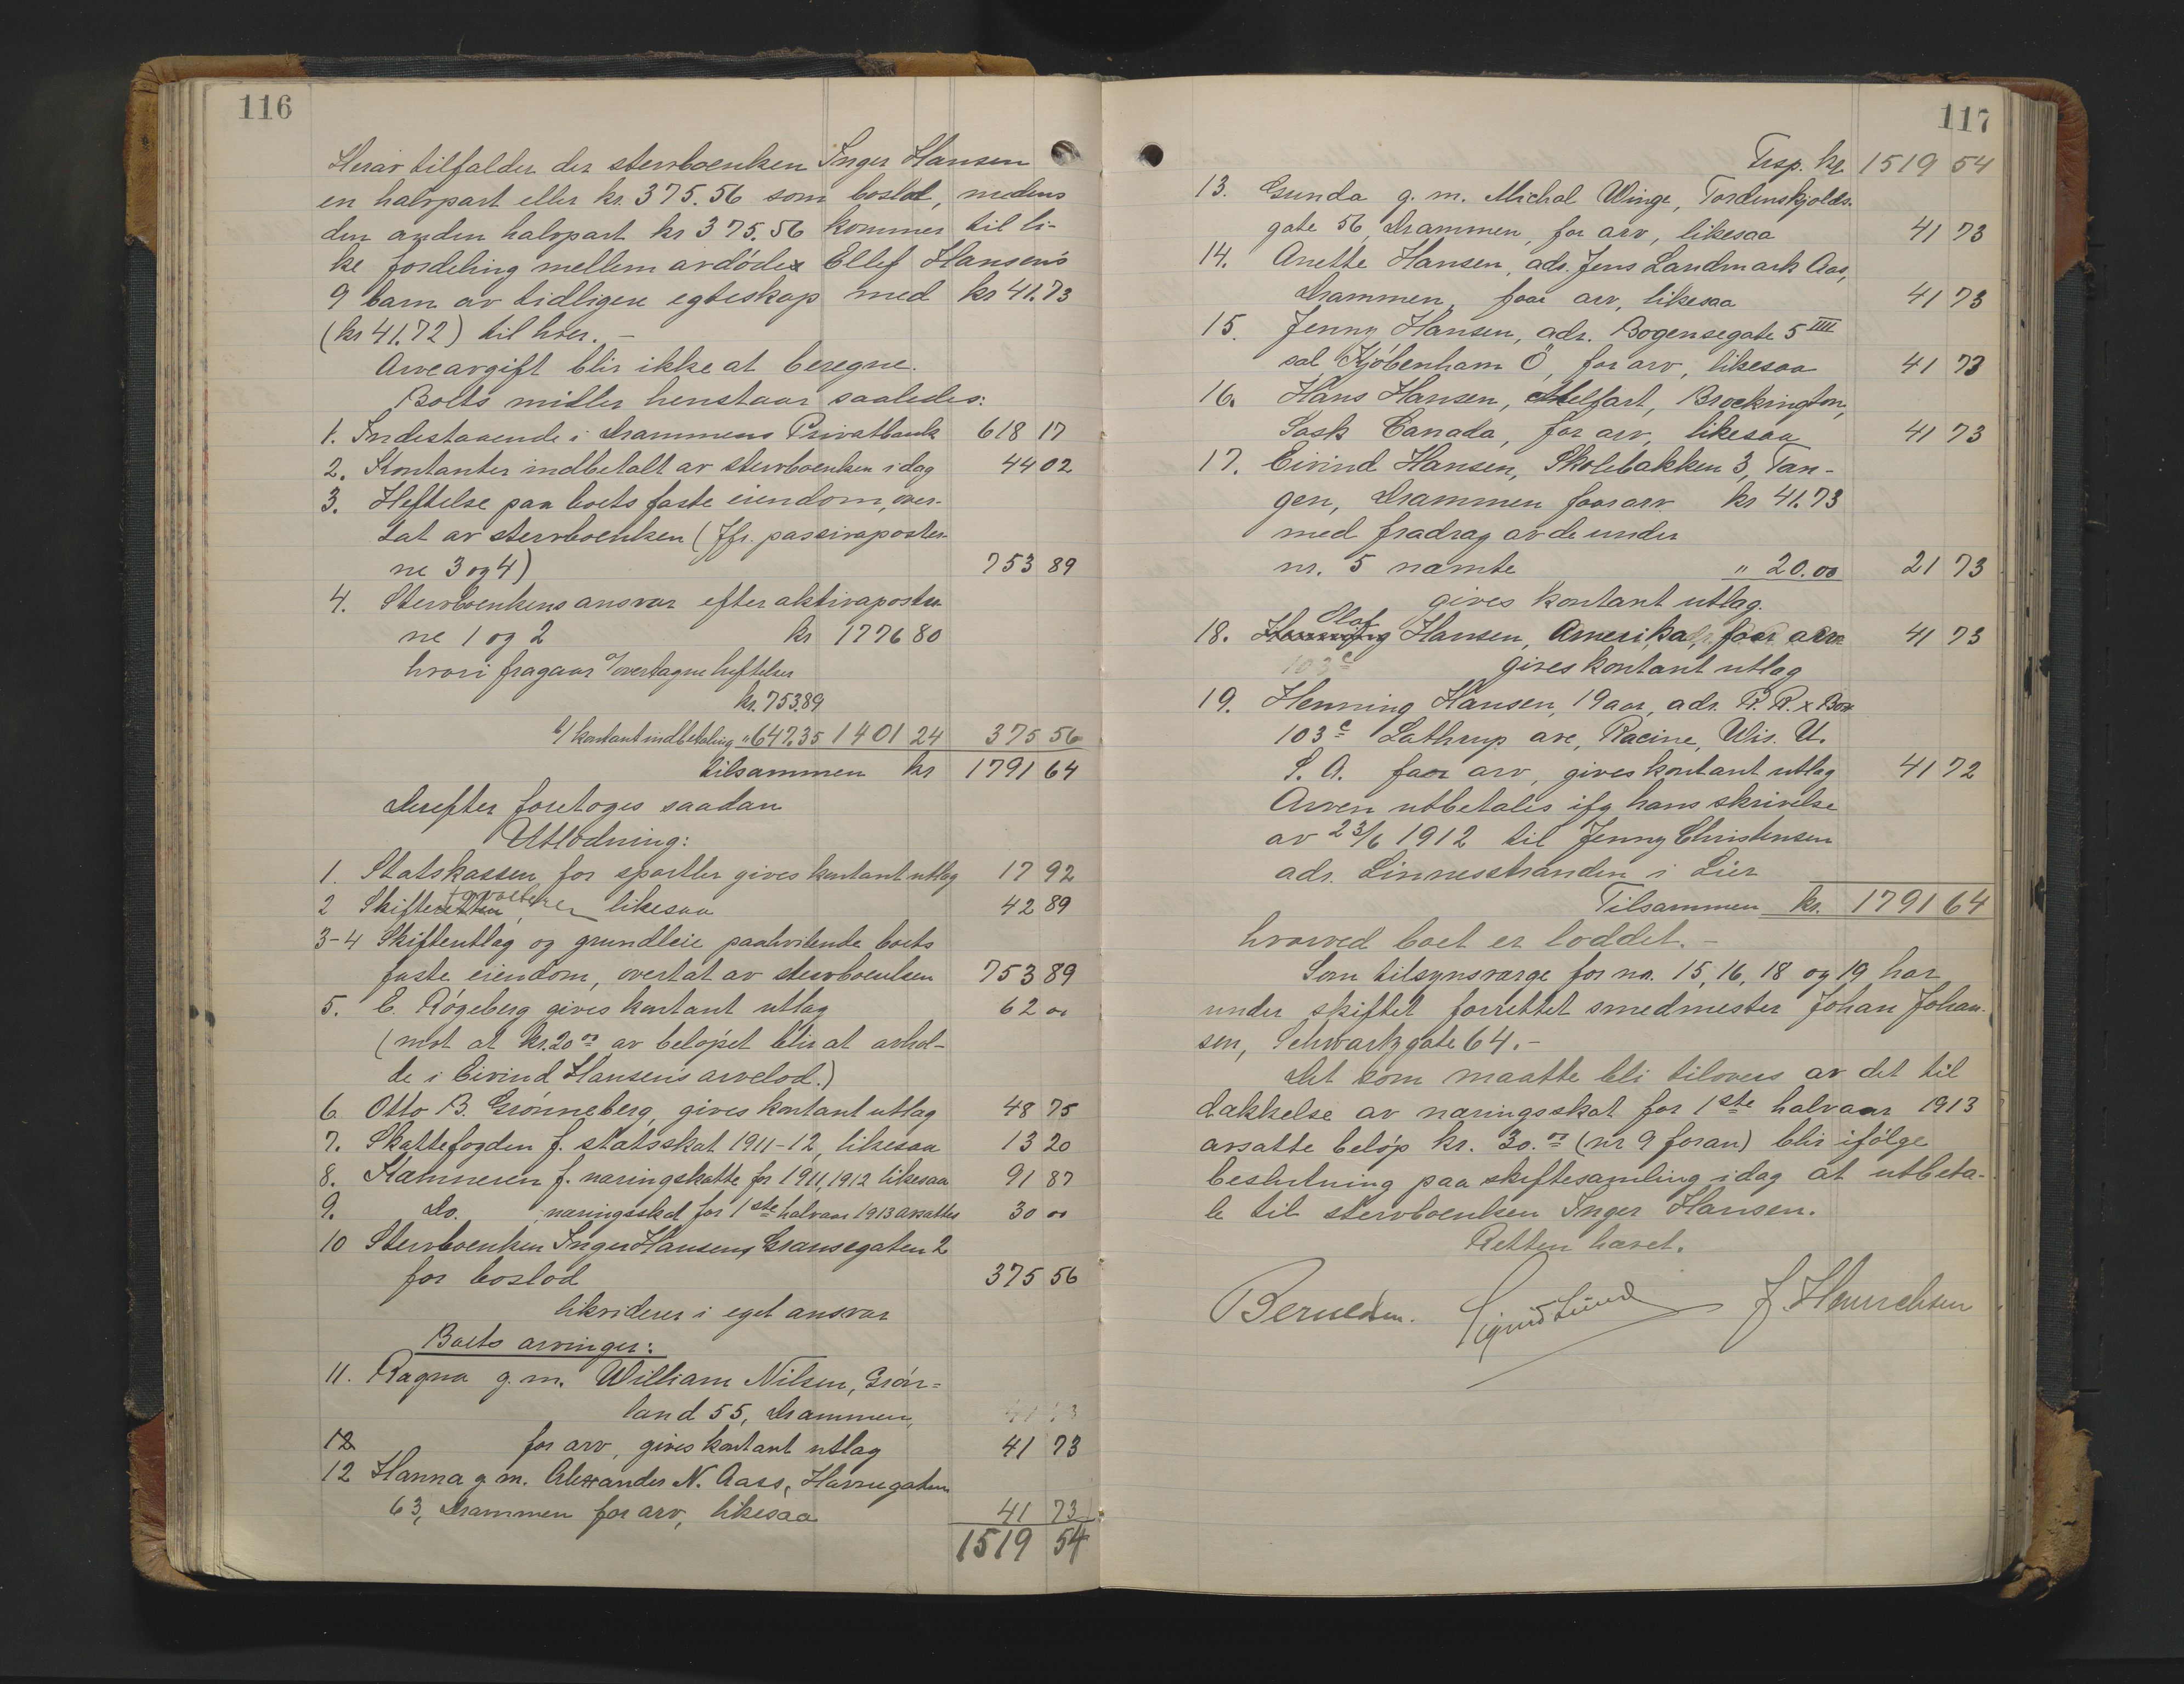 116
Herav tilfalder der stervboenken Inger Hansen
en halvpart eller kr. 375.56 som boslod, medens
den anden halvpart kr 375.56 kommer til li-
ke fordeling mellem avdøde Ellef Hansen's
9 barn av tidligere egteskap med kr 41.73
(kr 41.72) til hver. –
Arveavgift blir ikke at beregne.
Boets midler henstaar saaledes:
1. Indestaaende i Drammens Privatbank 618 17
2. Kontanter indbetalt av stervboenken idag 44 02
3. Heftelse paa boets faste eiendom, over-
tat av stervboenken (Jfr. passivaposter-
ne 3 og 4) 753 89
4. Stervboenkens ansvar efter aktivaposter
ne 1 og 2 kr 1776 80
hvori fragaar a/ overtagne heftelser
kr. 753.89
b/ kontant indbetaling " 647.35 1401 24 375 56
tilsammen kr 1791 64
Derefter foretoges saadan
Utlodning:
1. Statskassen for sportler gives kontant utlag 17 92
2 Skifteretten, likesaa 42 89
3-4 Skifteutlæg og grundleie paahvilende boets
faste eiendom, overtat av stervboenken 753 89
5. E. Røgeberg gives kontant utlag 62 00
(mot at kr. 20 00 av beløpet blir at avhol-
de i Eivind Hansen's arvelod.)
6. Otto B. Grønneberg, gives kontant utlag 48 75
7. Skattefogden f. statsskat 1911-12, likesaa 13 20
8. Kæmneren f. næringskatte for 1911, 1912 likesaa 91 87
9. Do. næringsskat for 1ste halvaar 1913 avsattes 30 00
10 Stervboenken Inger Hansen, Gransegaten 2
for boslod 375 56
likviderer i eget ansvar
Boets arvinger:
11. Ragna g. m. William Nilsen, Grøn-
land 55, Drammen,
12 for arv, gives kontant utlag 41 73
12 Hanna g. m. Alexander N. Aass, Havnegaten
63, Drammen for arv, likesaa 41 73
1519 54
117
Trsp. kr. 1519 54
13. Gunda g. m. Michal Winge, Tordenskjolds-
gate 56, Drammen, for arv, likesaa 41 73
14. Anette Hansen, adr. Jens Landmark Aas,
Drammen, faar arv, likesaa 41 73
15. Jenny Hansen, adr. Bogensegate 5 IIII
sal, Kjøbenhavn Ö, for arv, likesaa 41 73
16. Hans Hansen, Melfart, Brockington,
Sask Canada, for arv, likesaa 41 73
17. Eivind Hansen, Skolebakken 3, Tan-
gen, Drammen faar arv kr 41.73
med fradrag av de under
nr. 5 nævnte " 20.00 21 73
gives kontant utlag.
Olaf
18. Henning Hansen, Amerika, faar arv 41 73
103 c gives kontant utlag
19. Henning Hansen, 19 aar, adr. R. R. x Box
103 c Lathrup ave, Racine, Wis. U.
S. A. faar arv, gives kontant utlag 41 72
Arven utbetales ifg hans skrivelse
av 23/6 1912 til Jenny Christensen
adr. Linnesstranden i Lier
Tilsammen kr. 1791 64
hvorved boet er loddet. –
Som tilsynsværge for nr. 15, 16, 18 og 19 har
under skiftet forrettet smedmester Johan Johan-
sen, Schwartzgate 64. –
Det som maatte bli tilovers av det til
dækkelse av næringsskat for 1ste halvaar 1913
avsatte beløp kr. 30.00 (nr 9 foran) blir ifølge
beslutning paa skiftesamling idag at utbeta-
le til stervboenken Inger Hansen.
Retten hævet.
Sigurd Lund